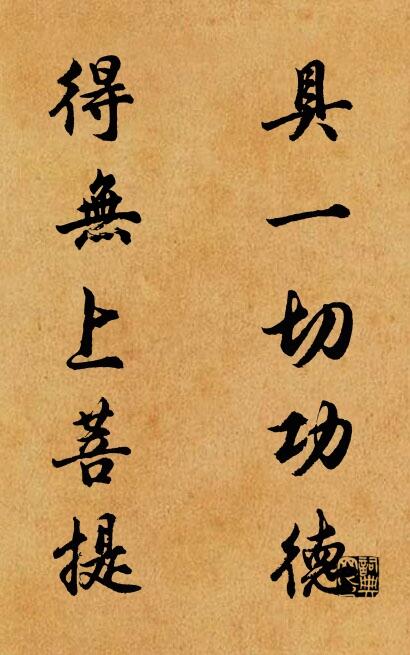 具一切功德
得無上菩提